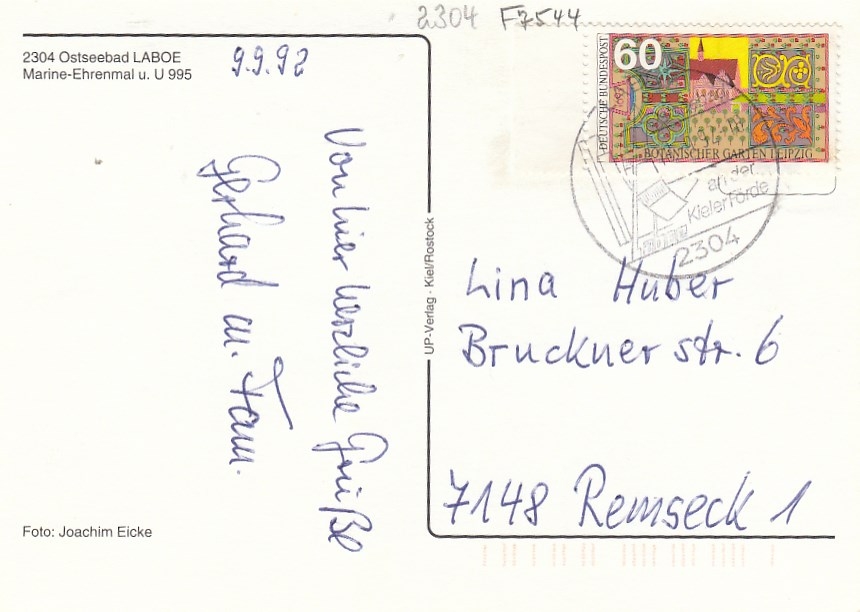 2304 F7544
2304 Ostseebad LABOE
Marine-Ehrenmal u. U 995
9.9.92
Von hier herzliche Grüße
Gerhard m. Fam.
Foto: Joachim Eicke
UP-Verlag · Kiel/Rostock
60
DEUTSCHE BUNDESPOST
BOTANISCHER GARTEN LEIPZIG
an der
Kieler Förde
2304
Lina Huber
Bruckner str. 6
7148 Remseck 1